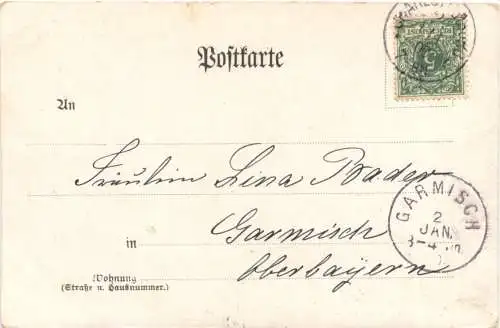 Postkarte
An
Fräulein Lina Bader
in Garmisch
Oberbayern
Wohnung
(Straße u. Hausnummer.)
GARMISCH
2
JAN.
3-4
5